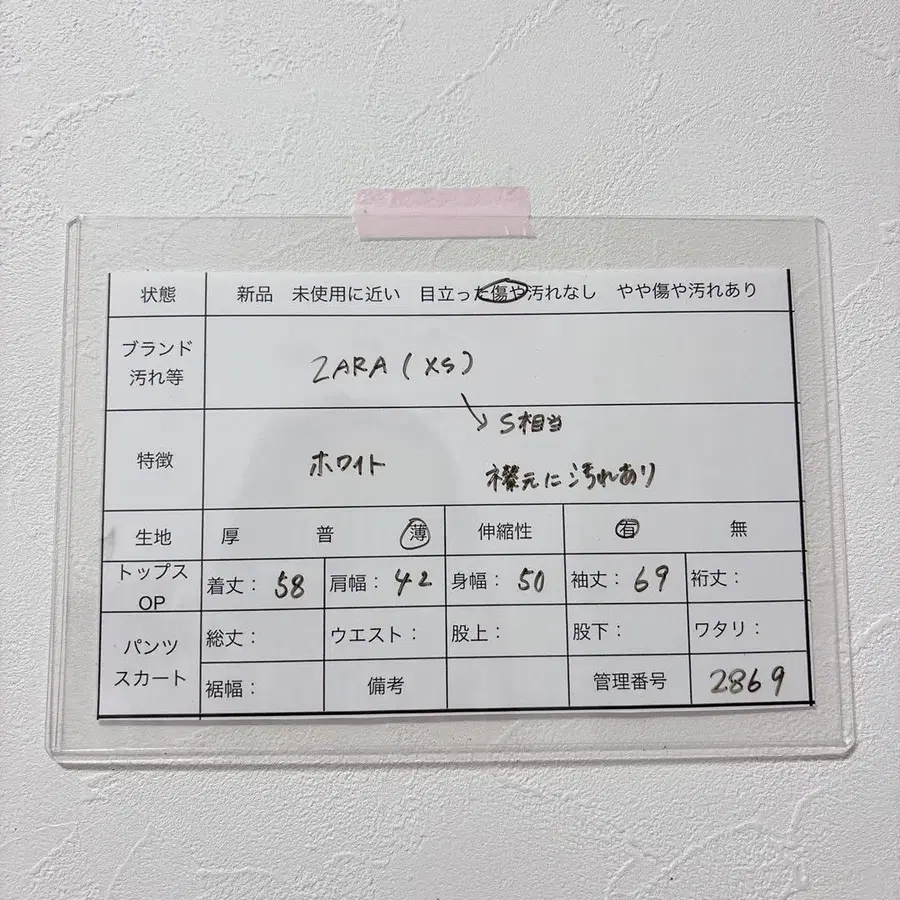 状態 新品 未使用に近い 目立った傷や汚れなし やや傷や汚れあり
ブランド
汚れ等
ZARA (XS)
→ S相当
特徴 ホワイト
襟元に汚れあり
生地 厚 普 薄 伸縮性 有 無
トップス
OP
着丈: 58 肩幅: 42 身幅: 50 袖丈: 69 裄丈:
パンツ
スカート
総丈: ウエスト: 股上: 股下: ワタリ:
裾幅: 備考 管理番号 2869